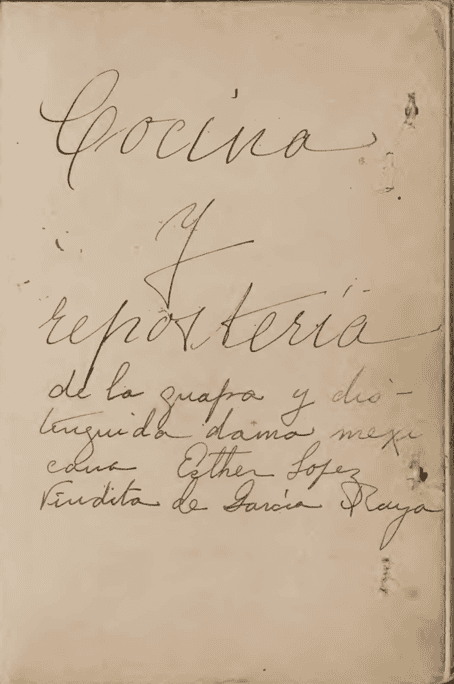 Cocina
y
repostería
de la guapa y dis-
tinguida dama mexi
cana Esther Lopez
Viudita de García Raya